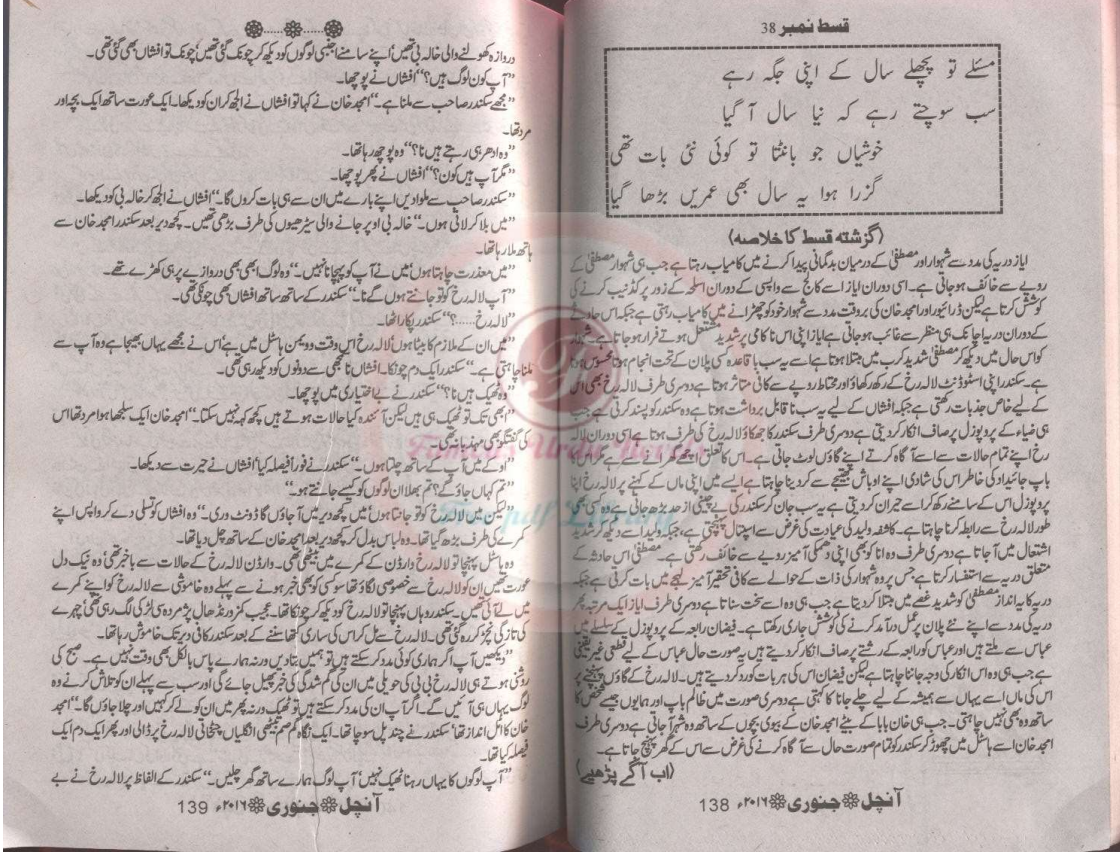 قسط نمبر 38
مسئلے تو پچھلے سال کے اپنی جگہ رہے
سب سوچتے رہے کہ نیا سال آ گیا
خوشیاں جو بانٹتا تو کوئی نئی بات تھی
گزرا ہوا یہ سال بھی عمریں بڑھا گیا
(گزشتہ قسط کا خلاصہ)
ایاز دریہ کی مدد سے شہوار اور مصطفیٰ کے درمیان بدگمانی پیدا کرنے میں کامیاب رہتا ہے جب ہی شہوار مصطفیٰ کے
رویے سے خائف ہو جاتی ہے۔ اسی دوران ایاز اسے کالج سے واپسی کے دوران اسلحہ کے زور پر کڈنیپ کرنے کی
کوشش کرتا ہے لیکن ڈرائیور اور امجد خان کی بروقت مدد سے شہوار خود کو چھڑانے میں کامیاب رہتی ہے جبکہ اس حادثے
کے دوران دریہ اچانک ہی منظر سے غائب ہو جاتی ہے ایاز اپنی اس ناکامی پر شدید مشتعل ہوتے فرار ہو جاتا ہے۔ شہوار
کو اس حال میں دیکھ کر مصطفیٰ شدید کرب میں مبتلا ہوتا ہے اسے یہ سب باقاعدہ کسی پلان کے تحت انجام ہوتا محسوس ہوتا
ہے۔ سکندر اپنی اسٹوڈنٹ لالہ رخ کے رکھ رکھاؤ اور محتاط رویے سے کافی متاثر ہوتا ہے دوسری طرف لالہ رخ بھی اس
کے لیے خاص جذبات رکھتی ہے جبکہ افشاں کے لیے یہ سب ناقابل برداشت ہوتا ہے وہ سکندر کو پسند کرتی ہے جب
ہی ضیاء کے پروپوزل پر صاف انکار کر دیتی ہے دوسری طرف سکندر کا جھکاؤ لالہ رخ کی طرف ہوتا ہے اسی دوران لالہ
رخ اپنے تمام حالات سے اسے آگاہ کرتے اپنے گاؤں لوٹ جاتی ہے۔ اس کا تعلق اچھے گھرانے سے ہے مگر اس کا
باپ جائیداد کی خاطر اس کی شادی اپنے اوباش بھتیجے سے کر دینا چاہتا ہے ایسے میں اپنی ماں کے کہنے پر لالہ رخ اپنا
پروپوزل اس کے سامنے رکھ کر اسے حیران کر دیتی ہے یہ سب جان کر سکندر کی بے چینی از حد بڑھ جاتی ہے وہ کسی بھی
طور لالہ رخ سے رابطہ کرنا چاہتا ہے۔ کاشفہ ولید کی عیادت کی غرض سے اسپتال پہنچتی ہے، جبکہ ولید اسے دیکھ کر شدید
اشتعال میں آ جاتا ہے دوسری طرف وہ انا کو بھی اپنی دھمکی آمیز رویے سے خائف رکھتی ہے۔ مصطفیٰ اس حادثہ کے
متعلق دریہ سے استفسار کرتا ہے جس پر وہ شہوار کی ذات کے حوالے سے کافی تحقیر آمیز لہجے میں بات کرتی ہے جبکہ
دریہ کا یہ انداز مصطفیٰ کو شدید غصے میں مبتلا کر دیتا ہے جب ہی وہ اسے سخت سناتا ہے دوسری طرف ایاز ایک مرتبہ پھر
دریہ کی مدد سے اپنے نئے پلان پر عمل درآمد کرنے کی کوشش جاری رکھتا ہے۔ فیضان رابعہ کے پروپوزل کے سلسلے میں
عباس سے ملتے ہیں اور عباس کو رابعہ کے رشتے پر صاف انکار کر دیتے ہیں یہ صورت حال عباس کے لیے قطعی غیر یقینی
ہے جب ہی وہ اس انکار کی وجہ جاننا چاہتا ہے لیکن فیضان اس کی ہر بات کو رد کر دیتے ہیں۔ لالہ رخ کے گاؤں پہنچنے پر
اس کی ماں اسے یہاں سے ہمیشہ کے لیے چلے جانا کا کہتی ہے دوسری صورت میں ظالم باپ اور ہمایوں جیسے شخص کا
ساتھ وہ بھی نہیں چاہتی۔ جب ہی خان بابا کے بیٹے امجد خان کے بیوی بچوں کے ساتھ وہ شہر آ جاتی ہے دوسری طرف
امجد خان اسے ہاسٹل میں چھوڑ کر سکندر کو تمام صورت حال سے آگاہ کرنے کی غرض سے اس کے گھر پہنچ جاتا ہے۔
(اب آگے پڑھیے)
آنچل جنوری ۲۰۱۶ء 138
دروازہ کھولنے والی خالہ بی تھیں' اپنے سامنے اجنبی لوگوں کو دیکھ کر چونک گئی تھیں' چونک تو افشاں بھی گئی تھی۔
"آپ کون لوگ ہیں؟" افشاں نے پوچھا۔
"مجھے سکندر صاحب سے ملنا ہے۔" امجد خان نے کہا تو افشاں نے الجھ کر ان کو دیکھا۔ ایک عورت ساتھ ایک بچہ اور
مرد تھا۔
"وہ ادھر ہی رہتے ہیں نا؟" وہ پوچھ رہا تھا۔
"مگر آپ ہیں کون؟" افشاں نے پھر پوچھا۔
"سکندر صاحب سے ملوا دیں اپنے بارے میں ان سے ہی بات کروں گا۔" افشاں نے الجھ کر خالہ بی کو دیکھا۔
"میں بلا کر لاتی ہوں۔" خالہ بی اوپر جانے والی سیڑھیوں کی طرف بڑھی تھیں۔ کچھ دیر بعد سکندر امجد خان سے
ہاتھ ملا رہا تھا۔
"میں معذرت چاہتا ہوں' میں نے آپ کو پہچانا نہیں۔" وہ لوگ ابھی بھی دروازے پر ہی کھڑے تھے۔
"آپ لالہ رخ کو تو جانتے ہوں گے نا۔" سکندر کے ساتھ ساتھ افشاں بھی چونکی تھی۔
"لالہ رخ.....؟" سکندر پکارا تھا۔
"میں ان کے ملازم کا بیٹا ہوں' لالہ رخ اس وقت وویمن ہاسٹل میں ہے' اس نے مجھے یہاں بھیجا ہے وہ آپ سے
ملنا چاہتی ہے۔" سکندر ایک دم چونکا۔ افشاں ناسمجھی سے دونوں کو دیکھ رہی تھی۔
"وہ ٹھیک ہیں نا؟" سکندر نے بے اختیاری میں پوچھا۔
"ابھی تک تو ٹھیک ہی ہیں لیکن آئندہ کیا حالات ہوتے ہیں کچھ کہہ نہیں سکتا۔" امجد خان ایک سلجھا ہوا مرد تھا اس
کی گفتگو بھی مہذبانہ تھی۔
"اوکے میں آپ کے ساتھ چلتا ہوں۔" سکندر نے فوراً فیصلہ کیا' افشاں نے حیرت سے دیکھا۔
"تم کہاں جاؤ گے؟ تم بھلا ان لوگوں کو کیسے جانتے ہو۔"
"لیکن میں لالہ رخ کو تو جانتا ہوں' میں کچھ دیر میں آ جاؤں گا ڈونٹ وری۔" وہ افشاں کو تسلی دے کر واپس اپنے
کمرے کی طرف بڑھ گیا تھا۔ وہ لباس بدل کر کچھ دیر بعد امجد خان کے ساتھ چل دیا تھا۔
وہ ہاسٹل پہنچا تو لالہ رخ وارڈن کے کمرے میں بیٹھی تھی۔ وارڈن لالہ رخ کے حالات سے باخبر تھی' وہ نیک دل
عورت تھیں ان کو لالہ رخ سے خصوصی لگاؤ تھا سو کسی کو بھی خبر ہونے سے پہلے وہ خاموشی سے لالہ رخ کو اپنے کمرے
میں لے آئی تھیں۔ سکندر وہاں پہنچا تو لالہ رخ کو دیکھ کر چونکا تھا۔ عجیب کمزور نڈھال پژمردہ سی لڑکی لگ رہی تھی' چہرے
کی تازگی نچڑ کر رہ گئی تھی۔ لالہ رخ سے مل کر اس کی ساری کتھا سننے کے بعد سکندر کافی دیر تک خاموش رہا تھا۔
"دیکھیں آپ اگر ہماری کوئی مدد کر سکتے ہیں تو ہمیں بتا دیں ورنہ ہمارے پاس بالکل بھی وقت نہیں ہے۔ صبح کی
روشنی ہوتے ہی لالہ رخ بی بی کی حویلی میں ان کی گم شدگی کی خبر پھیل جائے گی اور سب سے پہلے ان کو تلاش کرنے وہ
لوگ یہاں ہی آئیں گے۔ اگر آپ ان کی مدد کر سکتے ہیں تو ٹھیک ورنہ پھر میں ان کو لے کر کہیں اور چلا جاؤں گا۔" امجد
خان کا اٹل انداز تھا' سکندر نے چند پل سوچا تھا۔ ایک نگاہ گم صم بیٹھی انگلیاں چٹخاتی لالہ رخ پر ڈالی اور پھر ایک دم ایک
فیصلہ کیا تھا۔
"آپ لوگوں کا یہاں رہنا ٹھیک نہیں' آپ لوگ ہمارے ساتھ گھر چلیں۔" سکندر کے الفاظ پر لالہ رخ نے بے
آنچل جنوری ۲۰۱۶ء 139
Famous Urdu Novels
Free pdf Library